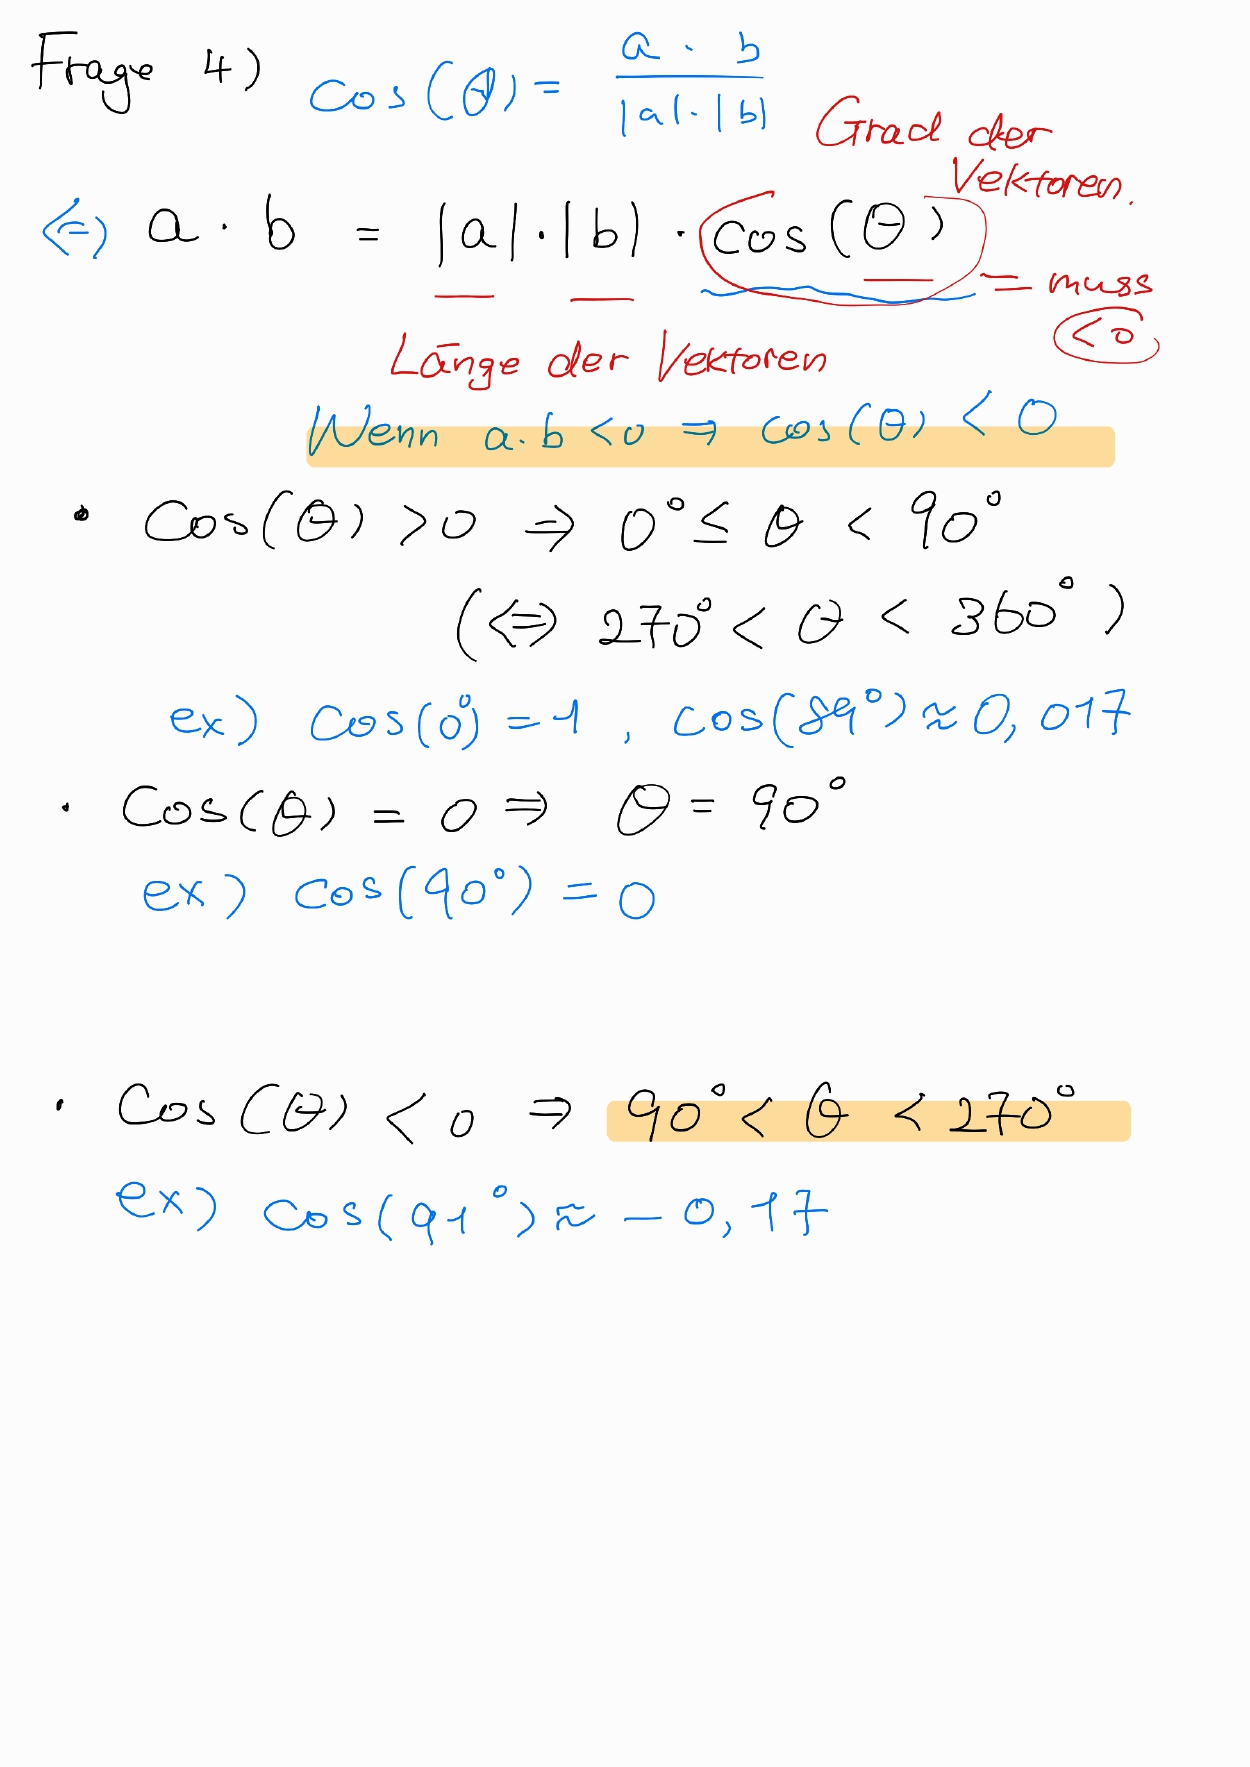 Frage 4) cos(θ) = a · b / |a| · |b|
Grad der
Vektoren.
⇔ a · b = |a| · |b| · cos(θ)
= muss
< 0
Länge der Vektoren
Wenn a · b < 0 ⇒ cos(θ) < 0
• Cos(θ) > 0 ⇒ 0° ≤ θ < 90°
(⇔ 270° < θ < 360°)
ex) cos(0°) = 1, cos(89°) ≈ 0,017
· Cos(θ) = 0 ⇒ θ = 90°
ex) cos(90°) = 0
· Cos(θ) < 0 ⇒ 90° < θ < 270°
ex) cos(91°) ≈ - 0,17